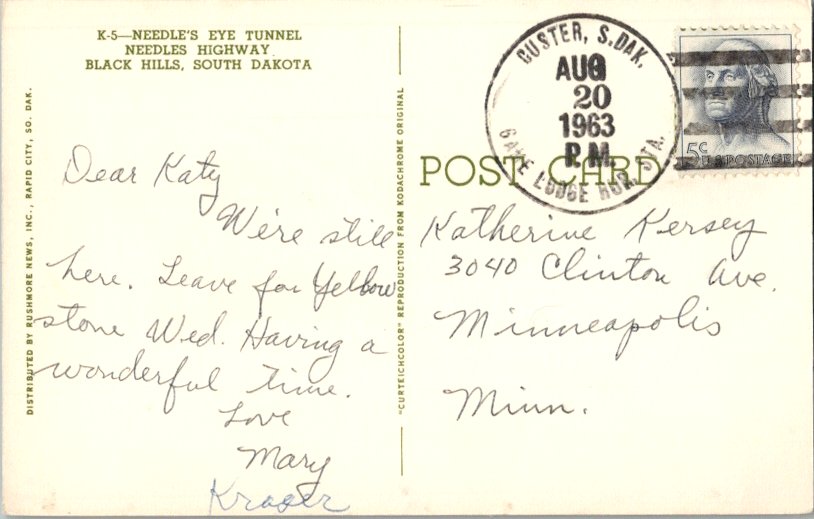 K-5—NEEDLE'S EYE TUNNEL
NEEDLES HIGHWAY
BLACK HILLS, SOUTH DAKOTA
DISTRIBUTED BY RUSHMORE NEWS, INC., RAPID CITY, SO. DAK.
Dear Katy
We're still
here. Leave for Yellow
stone Wed. Having a
wonderful time.
Love
Mary
Kraser
"CURTEICHCOLOR" REPRODUCTION FROM KODACHROME ORIGINAL
POST CARD
CUSTER, S.DAK.
AUG
20
1963
P.M.
GAME LODGE RUR. STA.
5c
U.S. POSTAGE
Katherine Kersey
3040 Clinton Ave.
Minneapolis
Minn.